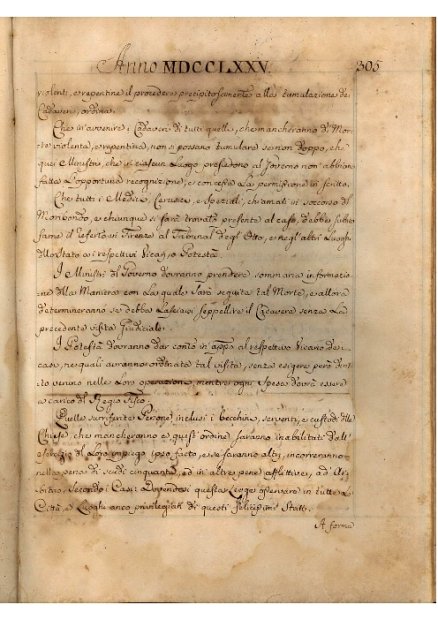 Anno MDCCLXXV. 305
violenti, e repentine il procedere precipitosamente alla tumulazione de'
Cadaveri, ordina.
Che in avvenire i Cadaveri di tutti quelli, che mancheranno di Mor-
te violenta, e repentina, non si possano tumulare se non doppo, che
quei Ministri, che in ciascun Luogo presiedono al Governo non abbian
fatta l'opportuna recognizione, e concessa la permissione in scritto.
Che tutti i Medici, Cerusici, e Speziali, chiamati in soccorso del
Moribondo, e chiunque si sarà trovato presente al caso, debba subito
farne il referto in Firenze al Tribunal degl'Otto, e negl'altri Luoghi
dello Stato a i respettivi Vicarj, o Potestà.
I Ministri del Governo dovranno prendere sommaria informazio-
ne della Maniera con la quale sarà seguita tal Morte, e allora
determineranno se debba lasciarsi seppellire il Cadavere senza la
precedente visita Giudiciale.
I Potestà dovranno dar conto in appo al respettivo Vicario de'
casi, ne quali avranno ordinata tal visita, senza esigere però emolu-
to veruno nelle loro operazioni, mentre ogni Spesa dovrà essere
a carico del Regio Fisco.
Quelle surriferite Persone inclusi i becchini, serventi, e custodi delle
Chiese, che mancheranno a quest'ordine, saranno inabilitati dall'
esercizio di Loro impiego ipso facto, e se faranno altri, incorreranno
nella pena di scudi cinquanta, ed in altre pene afflittive, ad Ar-
bitrio, secondo i Casi: Dovendosi questa Legge osservare in tutte le
Città, e Luoghi anco privilegiati di questi felicissimi Stati.
A forma